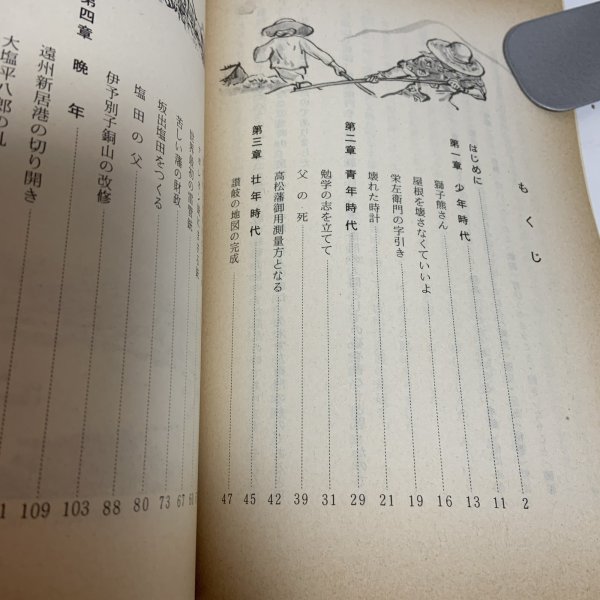 もくじ
はじめに 2
第一章 少年時代 11
獅子熊さん 13
屋根を壊さなくていいよ 16
栄左衛門の字引き 19
壊れた時計 21
第二章 青年時代 29
勉学の志を立てて 31
父の死 39
高松藩御用測量方となる 42
第三章 壮年時代 45
讃岐の地図の完成 47
世界最初の雷管銃
苦しい藩の財政 67
坂出塩田をつくる 73
塩田の父 80
伊予別子銅山の改修 88
第四章 晩年 103
遠州新居港の切り開き 109
大塩平八郎の乱